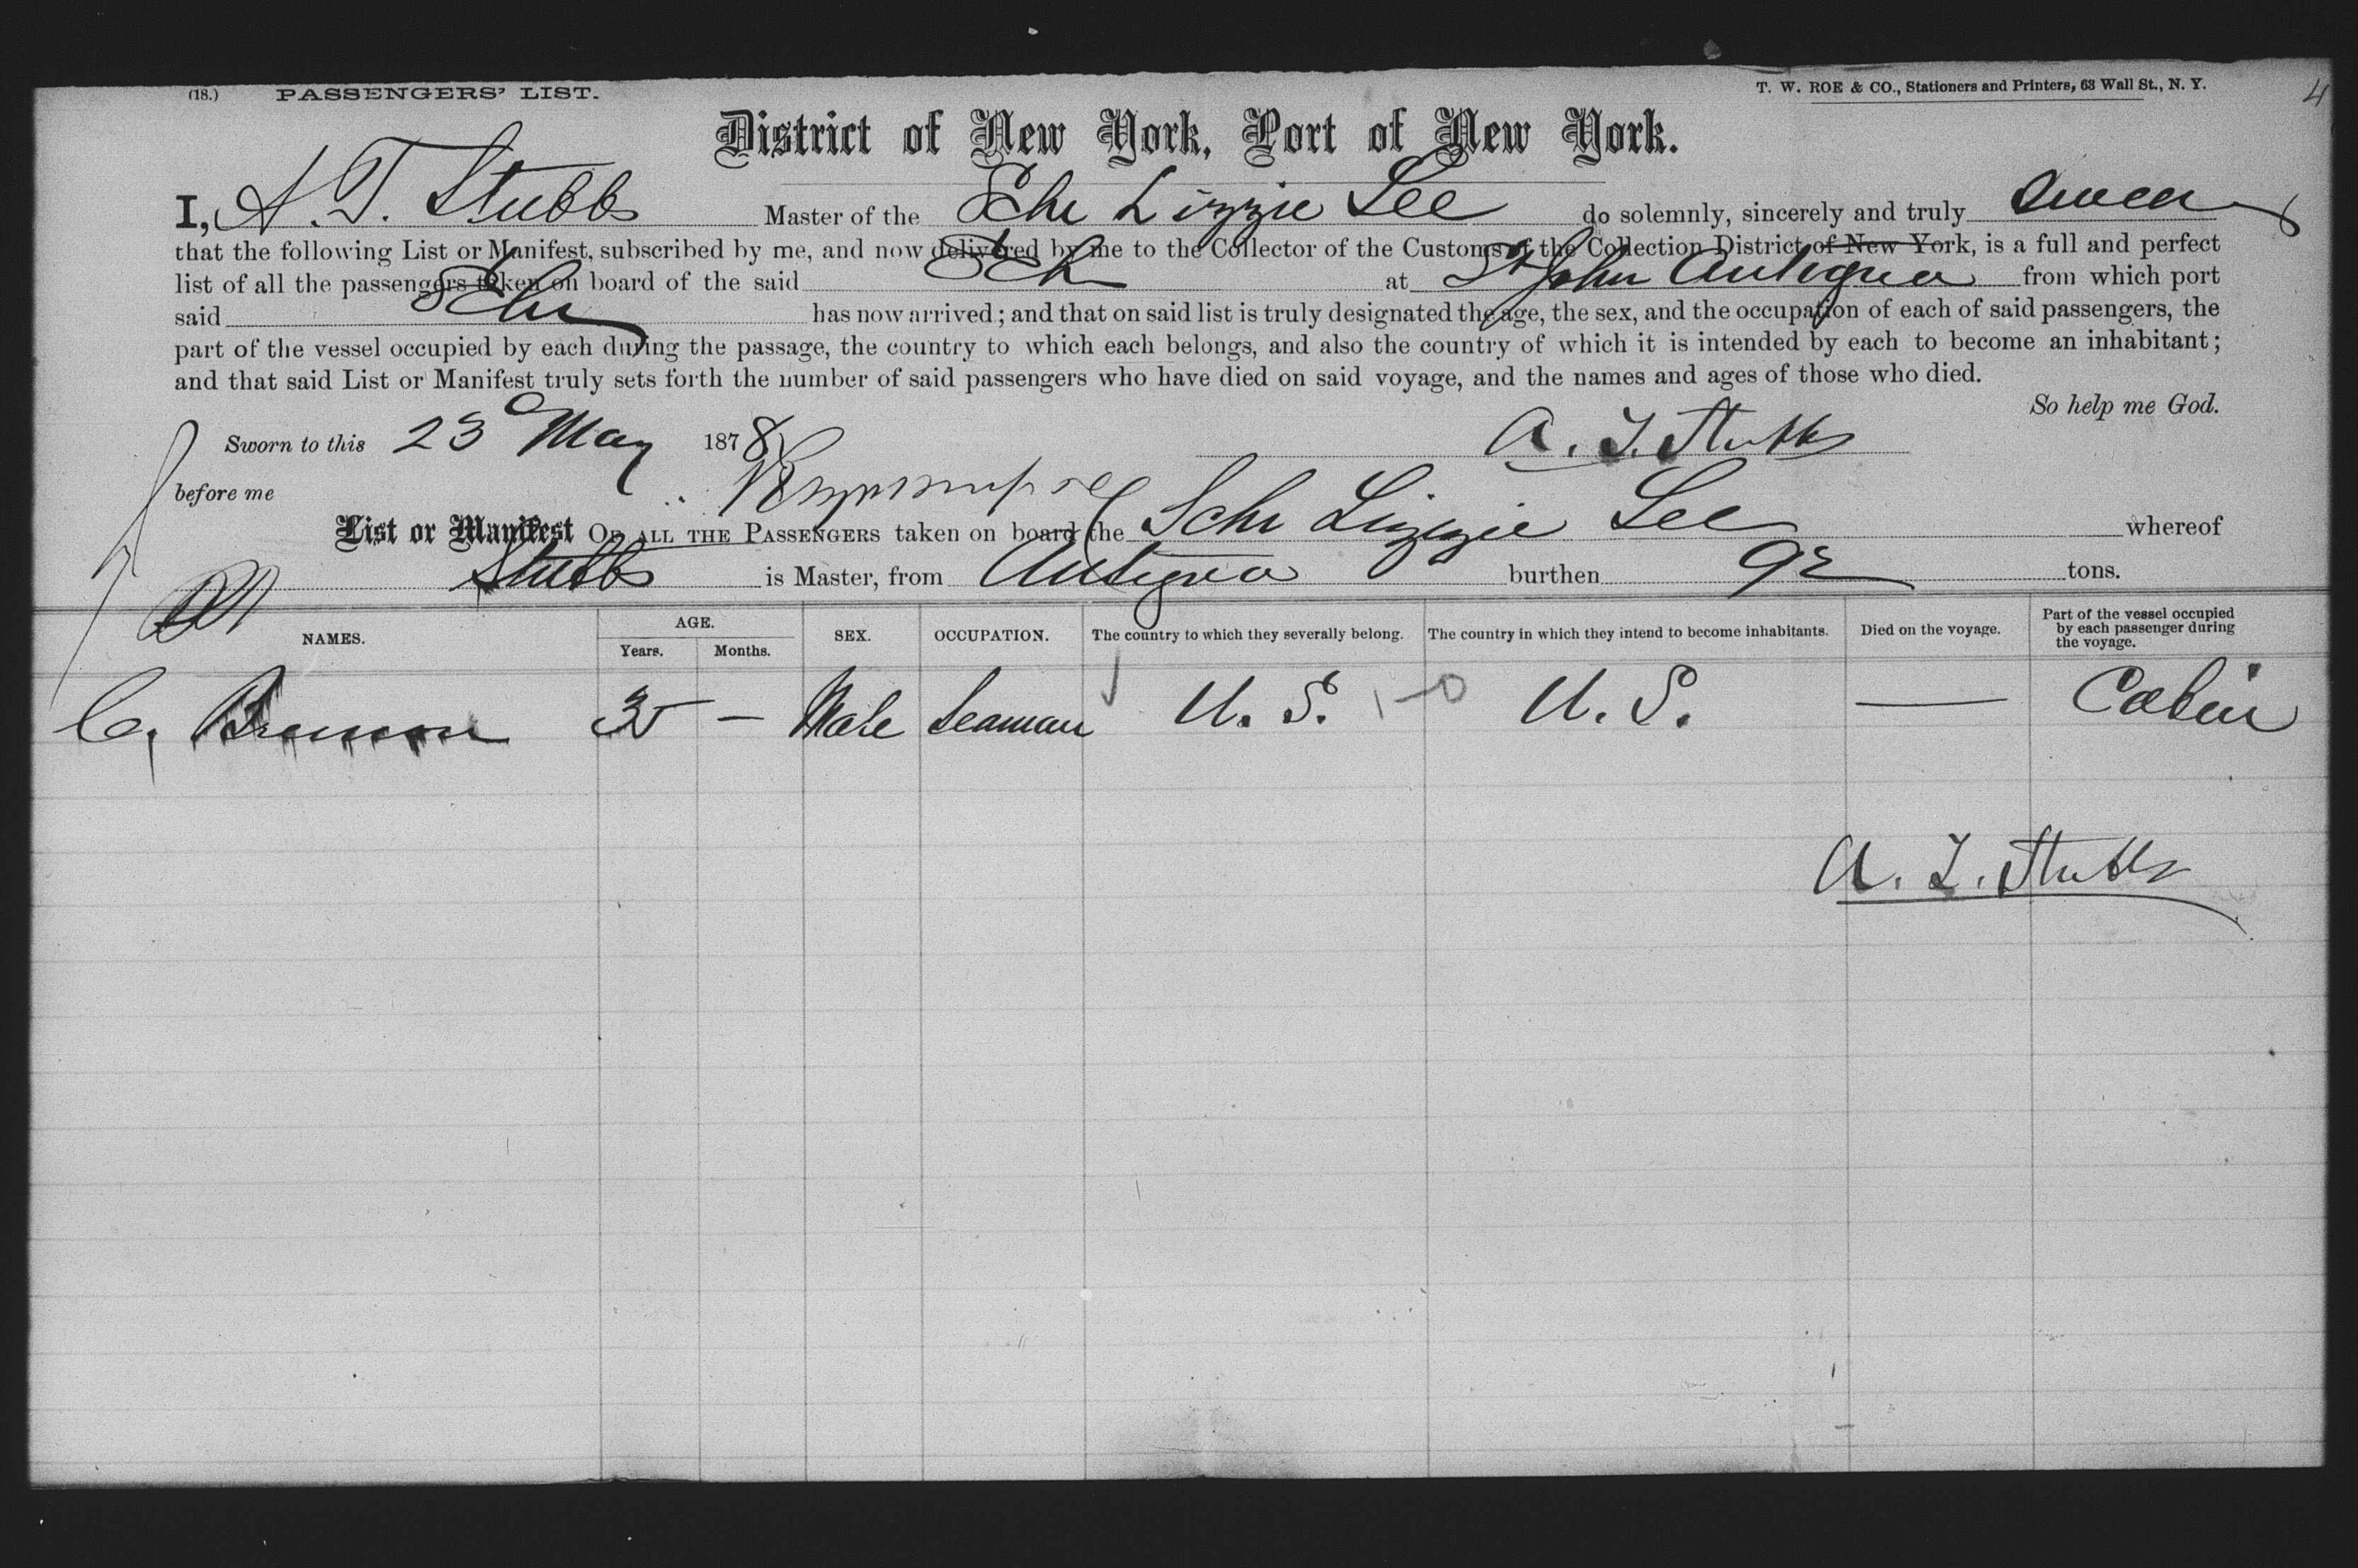 (18.) PASSENGERS' LIST. T. W. ROE & CO., Stationers and Printers, 63 Wall St., N. Y. 4
District of New York, Port of New York.
I, A. T. Stubbs Master of the Schr Lizzie Lee do solemnly, sincerely and truly swear
that the following List or Manifest, subscribed by me, and now delivered by me to the Collector of the Customs of the Collection District of New York, is a full and perfect
list of all the passengers taken on board of the said Sch at St John Antigua from which port
said Schr has now arrived; and that on said list is truly designated the age, the sex, and the occupation of each of said passengers, the
part of the vessel occupied by each during the passage, the country to which each belongs, and also the country of which it is intended by each to become an inhabitant;
and that said List or Manifest truly sets forth the number of said passengers who have died on said voyage, and the names and ages of those who died.
So help me God.
Sworn to this 23d May 1878 A. T. Stubbs
before me
List or Manifest OF ALL THE PASSENGERS taken on board the Schr Lizzie Lee whereof
Stubbs is Master, from Antigua burthen 92 tons.
NAMES. AGE. Years. Months. SEX. OCCUPATION. The country to which they severally belong. The country in which they intend to become inhabitants. Died on the voyage. Part of the vessel occupied by each passenger during the voyage.
C. 35 — Male Seaman U. S. 1-0 U. S. — Cabin
A. T. Stubbs